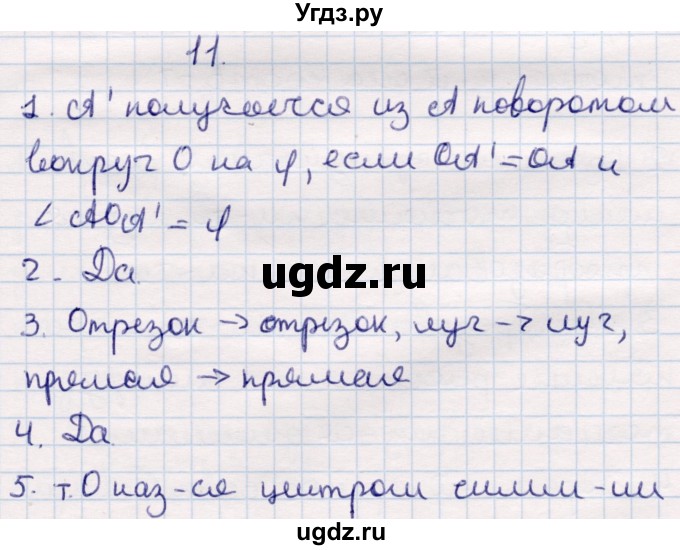 Угдз.ру
11.
1. A' получается из A поворотом
вокруг O на φ, если OA' = OA и
∠ AOA' = φ
2. Да.
ugdz.ru
3. Отрезок → отрезок, луч → луч,
прямая → прямая
4. Да.
5. т. O наз-ся центром симм-ии
ugdz.ru